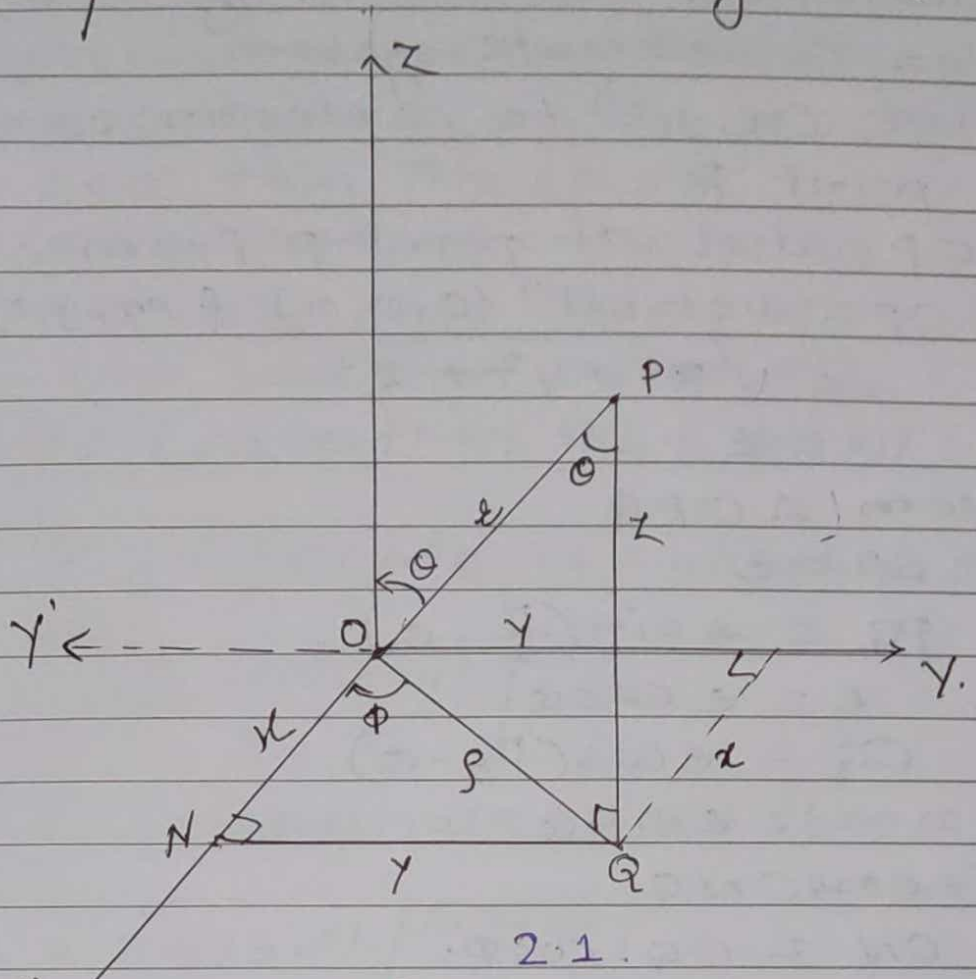 Z
P
θ
r
Z
θ
Y'
O
Y
Y.
x
Φ
ρ
x
N
Y
Q
2.1.